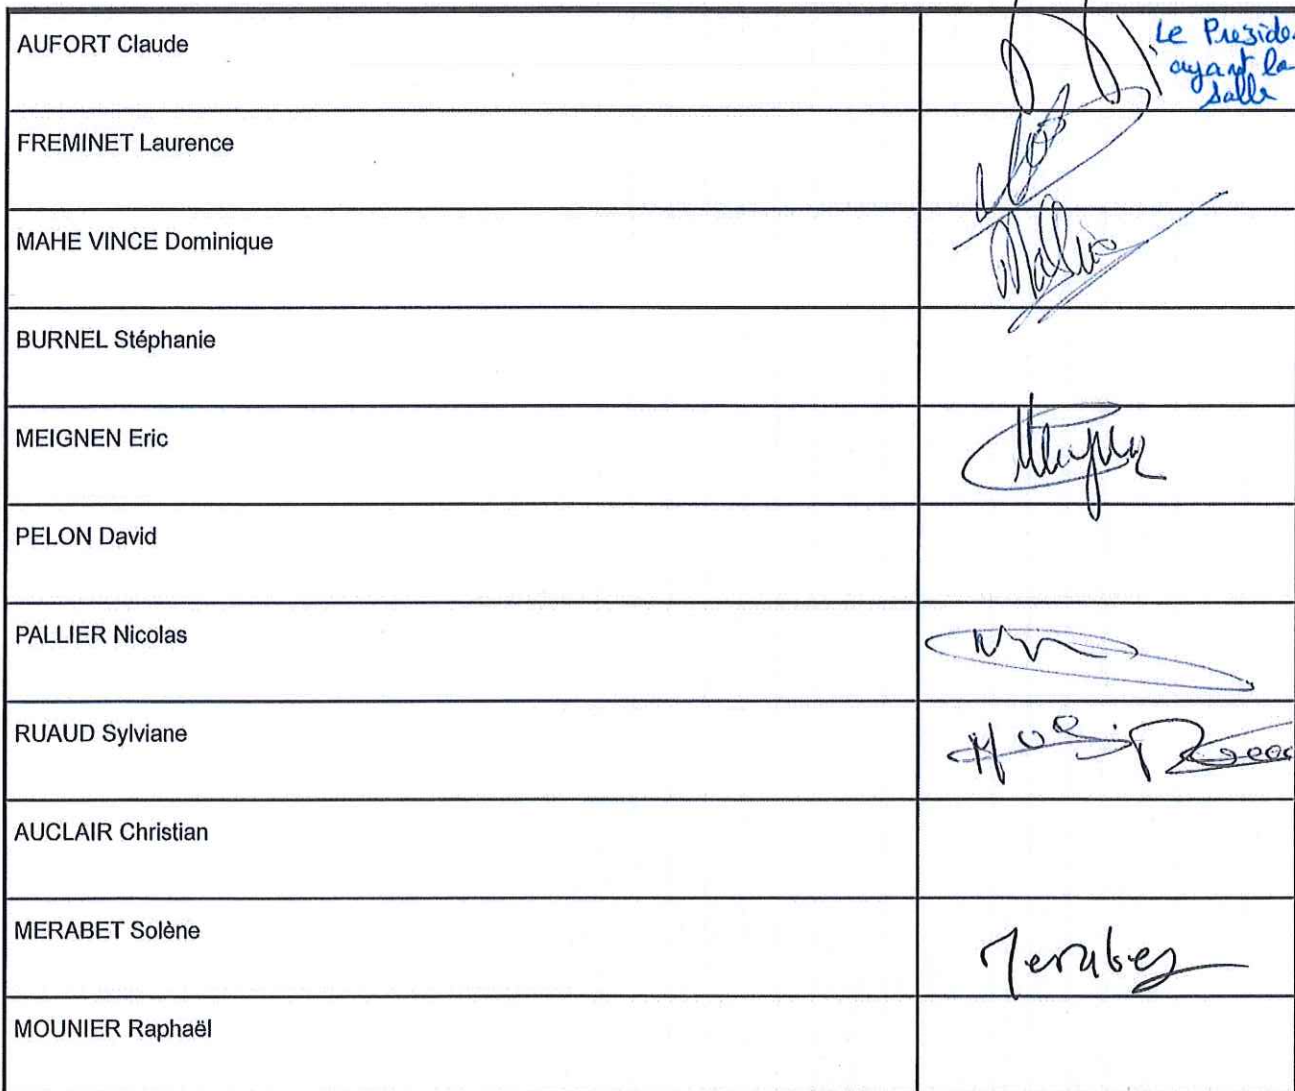 AUFORT Claude
Le Préside
ayant la
salle
FREMINET Laurence
MAHE VINCE Dominique
BURNEL Stéphanie
MEIGNEN Eric
PELON David
PALLIER Nicolas
RUAUD Sylviane
AUCLAIR Christian
MERABET Solène
Merabet
MOUNIER Raphaël